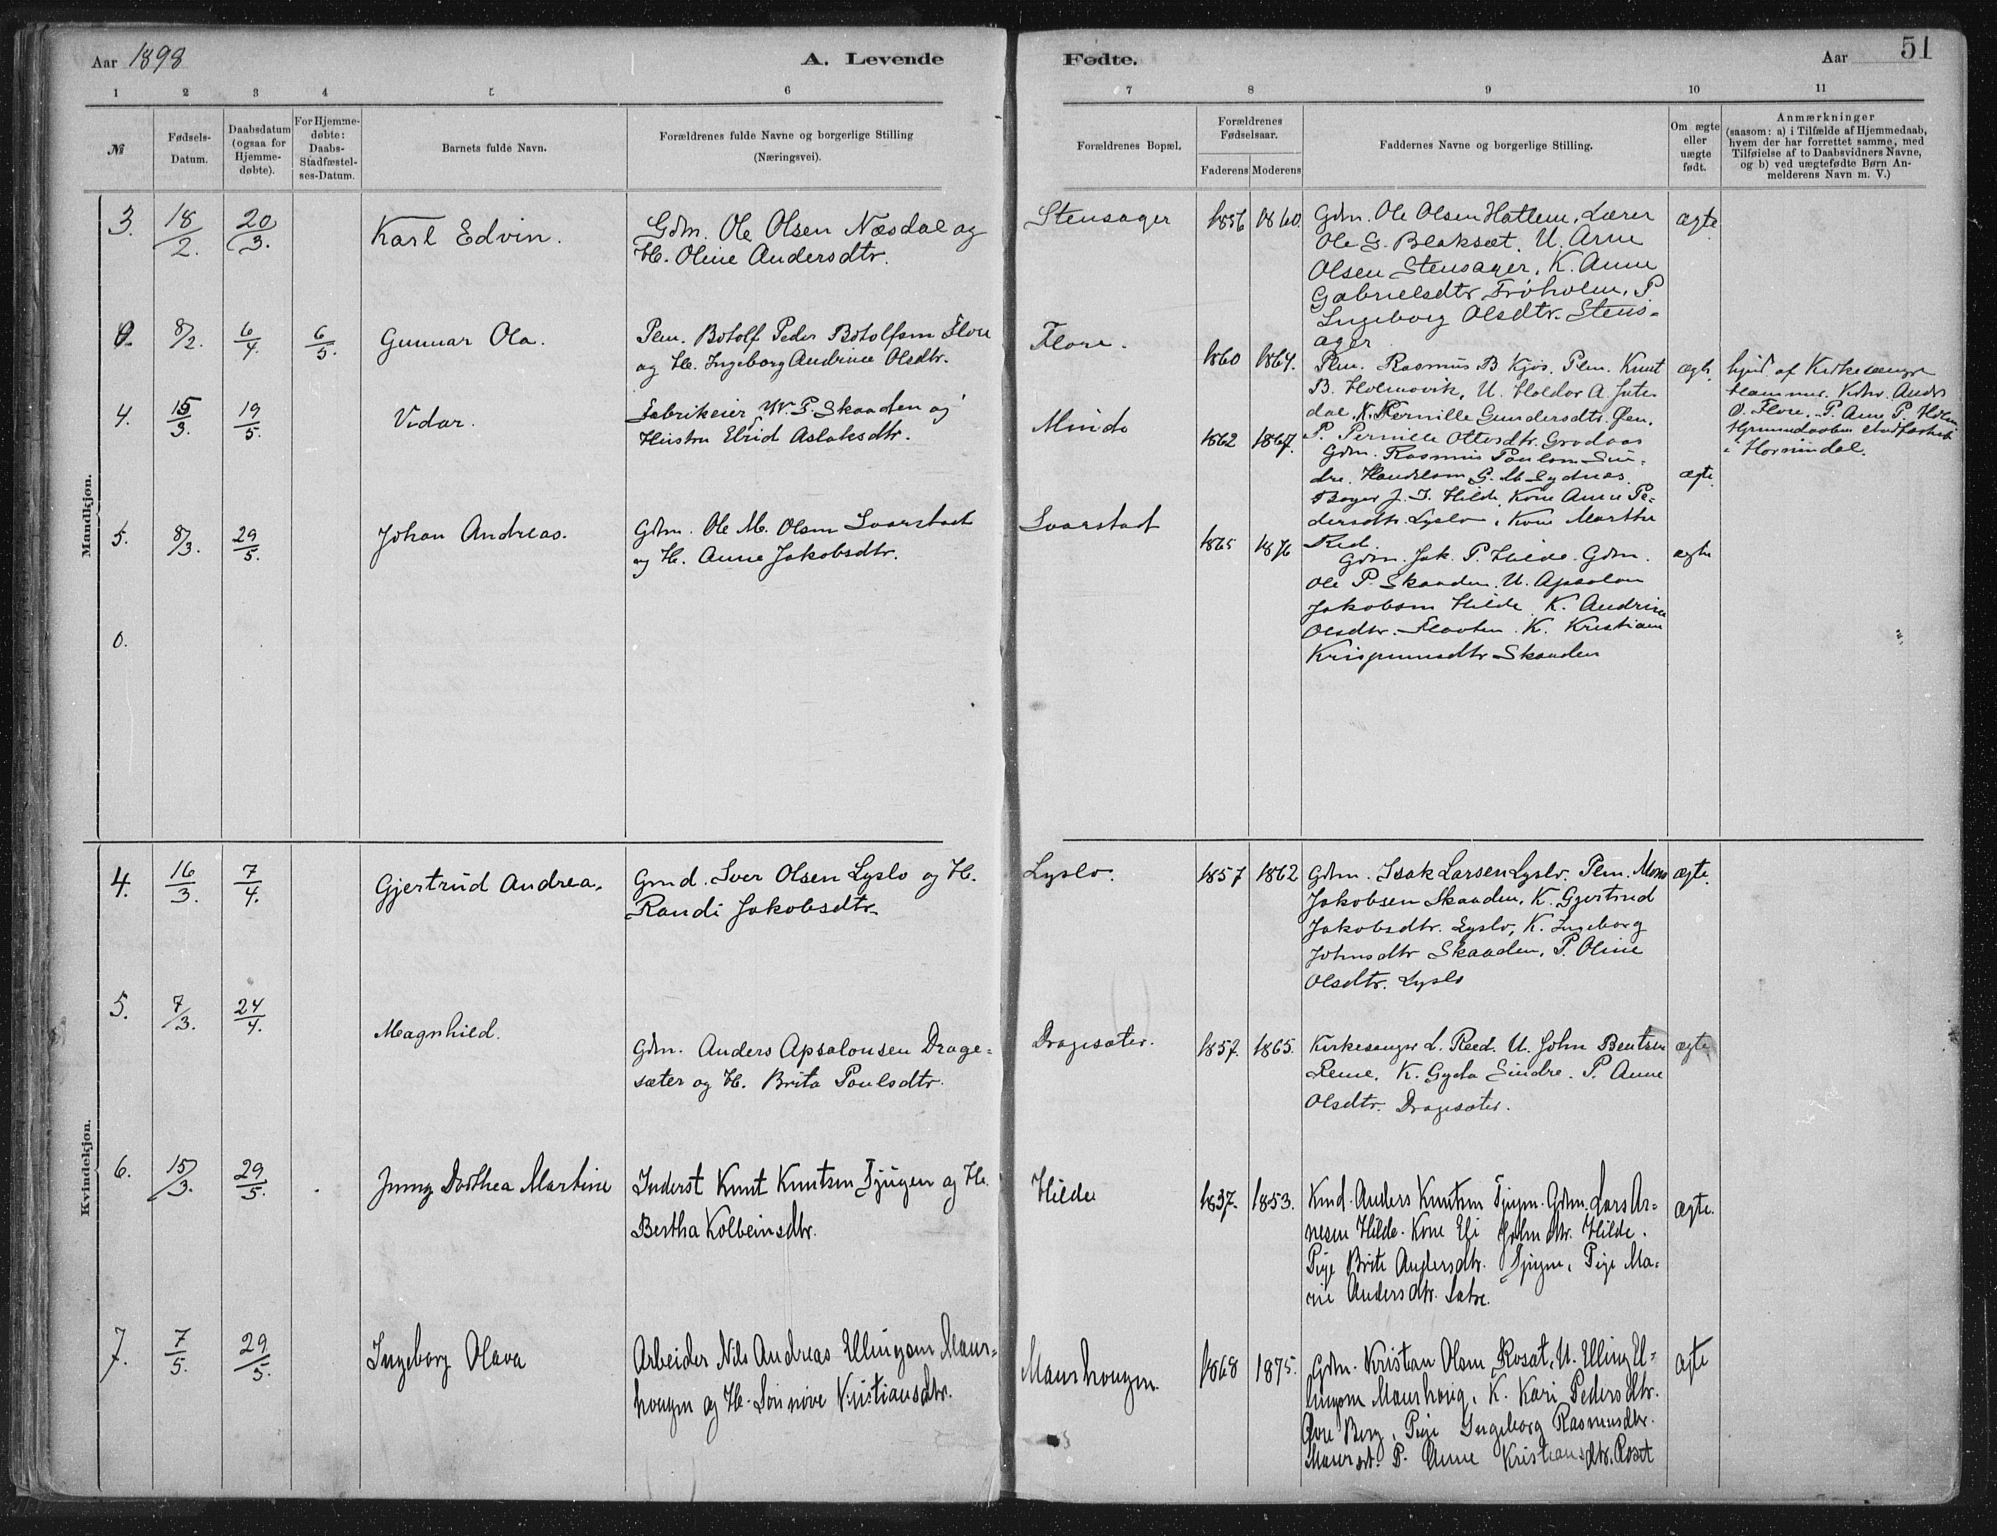 Aar 1898
A. Levende
Fødte.
Aar
51
1 2 3 4 5 6
7 8 9 10 11
№
Fødsels-
Datum.
Daabsdatum
(ogsaa for
Hjemme-
døbte).
For Hjemme-
døbte:
Daabs-
Stadfæstel-
ses-Datum.
Barnets fulde Navn.
Forældrenes fulde Navne og borgerlige Stilling
(Næringsvei).
Forældrenes Bopæl.
Forældrenes
Fødselsaar.
Faderens Moderens
Faddernes Navne og borgerlige Stilling.
Om ægte
eller
uægte
født.
Anmærkninger
(saasom: a) i Tilfælde af Hjemmedaab,
hvem der har forrettet samme, med
Tilføielse af to Daabsvidners Navne,
og b) ved uægtefødte Børn An-
melderens Navn m. V.)
Mandkjøn.
3. 18/2. 20/3.
Karl Edvin.
Gdm. Ole Olsen Næsdal og
H. Oline Andersdtr.
Stensager
1856 1860.
Gdm. Ole Olsen Hattem, Lærer
Ole S. Blaksæt. U. Arne
Olsen Stensager, K. Anne
Gabrielsdtr Frøholm, P
Ingeborg Olsdtr. Stens-
ager
ægte
0. 8/2. 6/4 6/5.
Gunnar Ola.
Plm. Botolf Peder Botolfsen Flore
og H. Ingeborg Andrine Olsdtr.
Flore.
1860 1864.
Plm. Rasmus B. Kjøs. Plm. Knut
B. Holmøvik, U. Haldor A.
dal, K. Pernille Gundersdtr.
P. Pernille Ottersdtr. Grodaas
ægte.
hjd. af Kirkesanger
Hammer. Kdm. Anders
O. Flore. P. Anne P.
i Hornindal.
4. 15/3. 19/5.
Vidar.
Fabrikeier W. P. Skaaden og
Hustru Elrid Aslaksdtr.
Minde
1862 1867.
Gdm. Rasmus Paulsen Sin-
dre. Handelsm. G. M. Sydnæs.
Bager J. I. Hilde, Kone Anne Pe-
dersdtr. Lyslo, Kone Marthe
Red.
ægte.
5. 8/3. 29/5.
Johan Andreas.
Gdm. Ole M. Olsen Svarstad
og H. Anne Jakobsdtr.
Svarstad
1865 1876
Gdm. Jak. P. Hilde. Gdm.
Ole P. Skaaden. U. Apsalon
Jakobsen Hilde. K. Andrine
Olsdtr. Flaaten. K. Kristiane
Krispinusdtr Skaaden
ægte
0.
Kvindekjøn.
4. 16/3. 7/4.
Gjertrud Andrea.
Gmd. Iver Olsen Lyslo og H.
Randi Jakobsdtr.
Lyslo.
1857 1862
Gdm. Isak Larsen Lyslo. Plm. Mons
Jakobsen Skaaden, K. Gjertrud
Jakobsdtr. Lyslo, K. Ingeborg
Johnsdtr Skaaden, P. Oline
Olsdtr. Lyslo
ægte.
5. 7/3. 24/4.
Magnhild.
Gdm. Anders Apsalonsen Drage-
sæter og H. Brita Paulsdtr.
Dragesæter.
1857. 1865.
Kirkesanger L. Reed. U. John Bentsen
Leme. K. Gyda Sindre. P. Anne
Olsdtr. Dragesæter.
ægte
6. 15/3. 29/5.
Jenny Dorthea Martine
Inderst Knut Knutsen Tjugen og H.
Bertha Kolbeinsdtr.
Hilde
1837. 1853.
Kmd. Anders Knutsen Tjugen. Gdm. Lars Ar-
nesen Hilde. Kone Eli Johnsdtr. Hilde.
Pige Brite Andersdtr. Tjugen, Pige Ma-
rie Andersdtr. Sætre.
ægte.
7. 7/5. 29/5.
Ingeborg Olava
Arbeider Nils Andreas Ellingsen Maurs-
hougen og H. Sønnøve Kristiansdtr.
Maurshougen.
1868 1875.
Gdm. Kristian Olsen Roset, U. Elling El-
lingsen Maurshoug, K. Kari Pedersdtr.
Øvre Berg. Pige Ingeborg Rasmusdtr.
Maurset. P. Anne Kristiansdtr. Roset
ægte